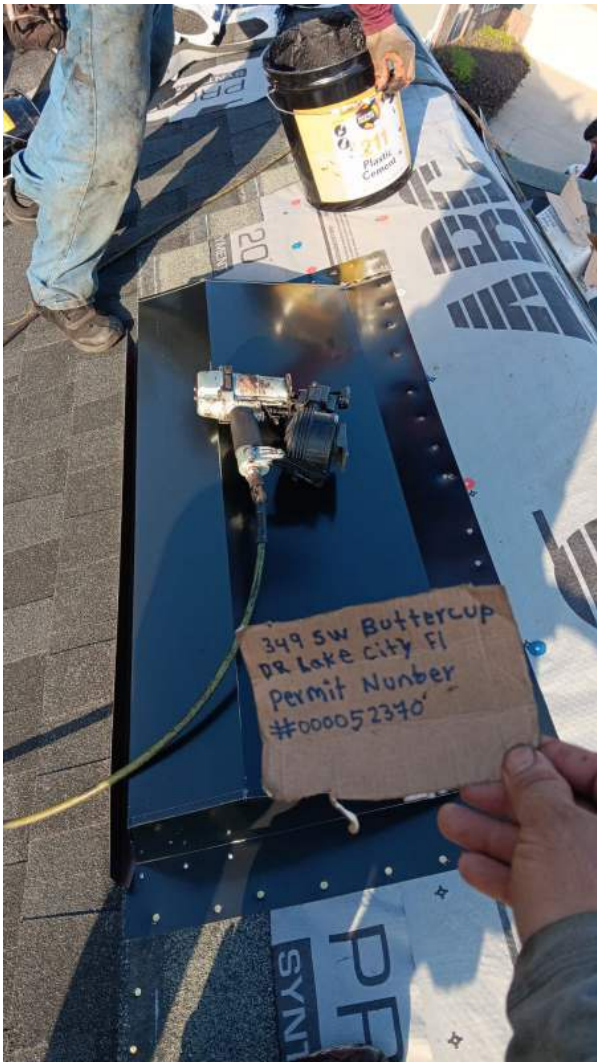 211
Plastic
Cement
20
349 SW Buttercup
DR Lake City Fl
Permit Nunber
#000052370
SYNT